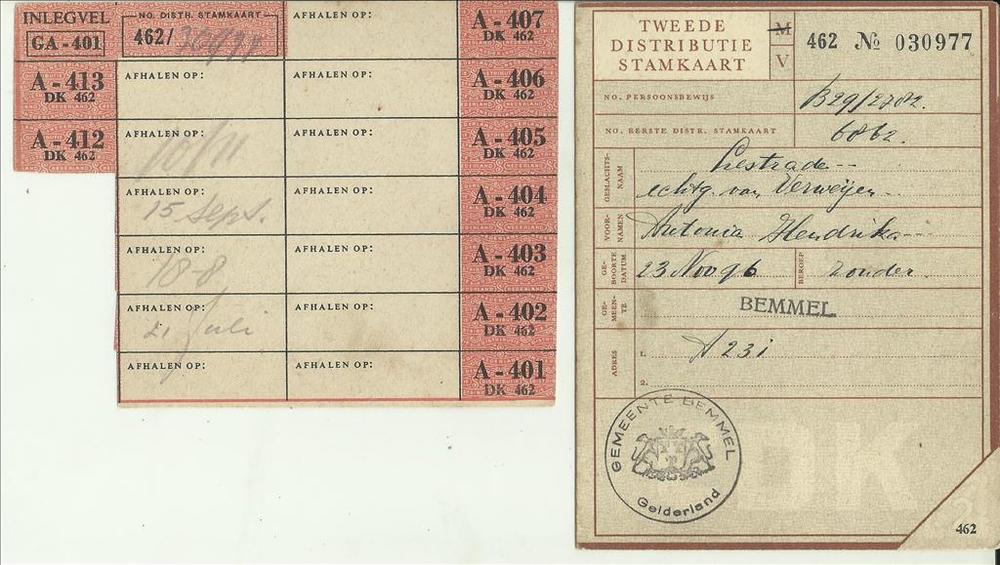 INLEGVEL
GA - 401
NO. DISTR. STAMKAART
462/
AFHALEN OP:
A - 407
DK 462
A - 413
DK 462
AFHALEN OP:
AFHALEN OP:
A - 406
DK 462
A - 412
DK 462
AFHALEN OP:
AFHALEN OP:
A - 405
DK 462
10/11
AFHALEN OP:
AFHALEN OP:
A - 404
DK 462
15 Sept.
AFHALEN OP:
AFHALEN OP:
A - 403
DK 462
18-8
AFHALEN OP:
AFHALEN OP:
A - 402
DK 462
21 Juli
AFHALEN OP:
AFHALEN OP:
A - 401
DK 462
TWEEDE
DISTRIBUTIE
STAMKAART
M
V
462 № 030977
NO. PERSOONSBEWIJS
B29/2782.
NO. EERSTE DISTR. STAMKAART
6862.
GESLACHTS-
NAAM
Lestrade --
echtg. van Verweijen --
VOOR-
NAMEN
Antonia Hendrika ---
GE-
BOORTE
DATUM
23 Nov 96
BEROEP
zonder.
GE-
MEEN-
TE
BEMMEL
ADRES
1. A 231
2.
GEMEENTE BEMMEL
Gelderland
DK
2
462